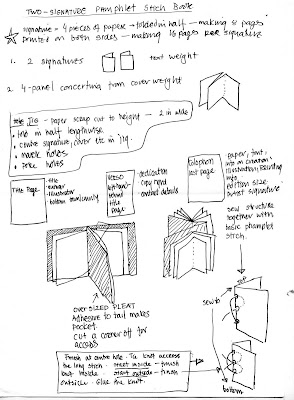 TWO-SIGNATURE Pamphlet Stich Book
signature = 4 pieces of paper - folded in half - making 8 pages
printed on both sides - making 16 pages per signature
1. 2 signatures
text weight
2. 4-panel concertina from cover weight
JIG - paper scrap cut to height - 2 in wide
• in half lengthwise
• centre signature, cover etc in jig.
• mark holes
• poke holes
Title Page
- title
- author
- illustrator
- bottom
VERSO
title
page
- dedication
- copy right
- contact details
Colophon
last page
paper, font,
info on creation
illustration, printing
info
edition size
artist signature
sew structure
together with
basic phamplet
stitch.
OVER SIZED PLEAT
Adhesive to tail makes
pocket.
cut a corner off for
access
sew to
bottom
Finish at centre hole. Tie knot across
the long stitch. start inside - finish
inside. start outside - finish
outside. Glue the knot.